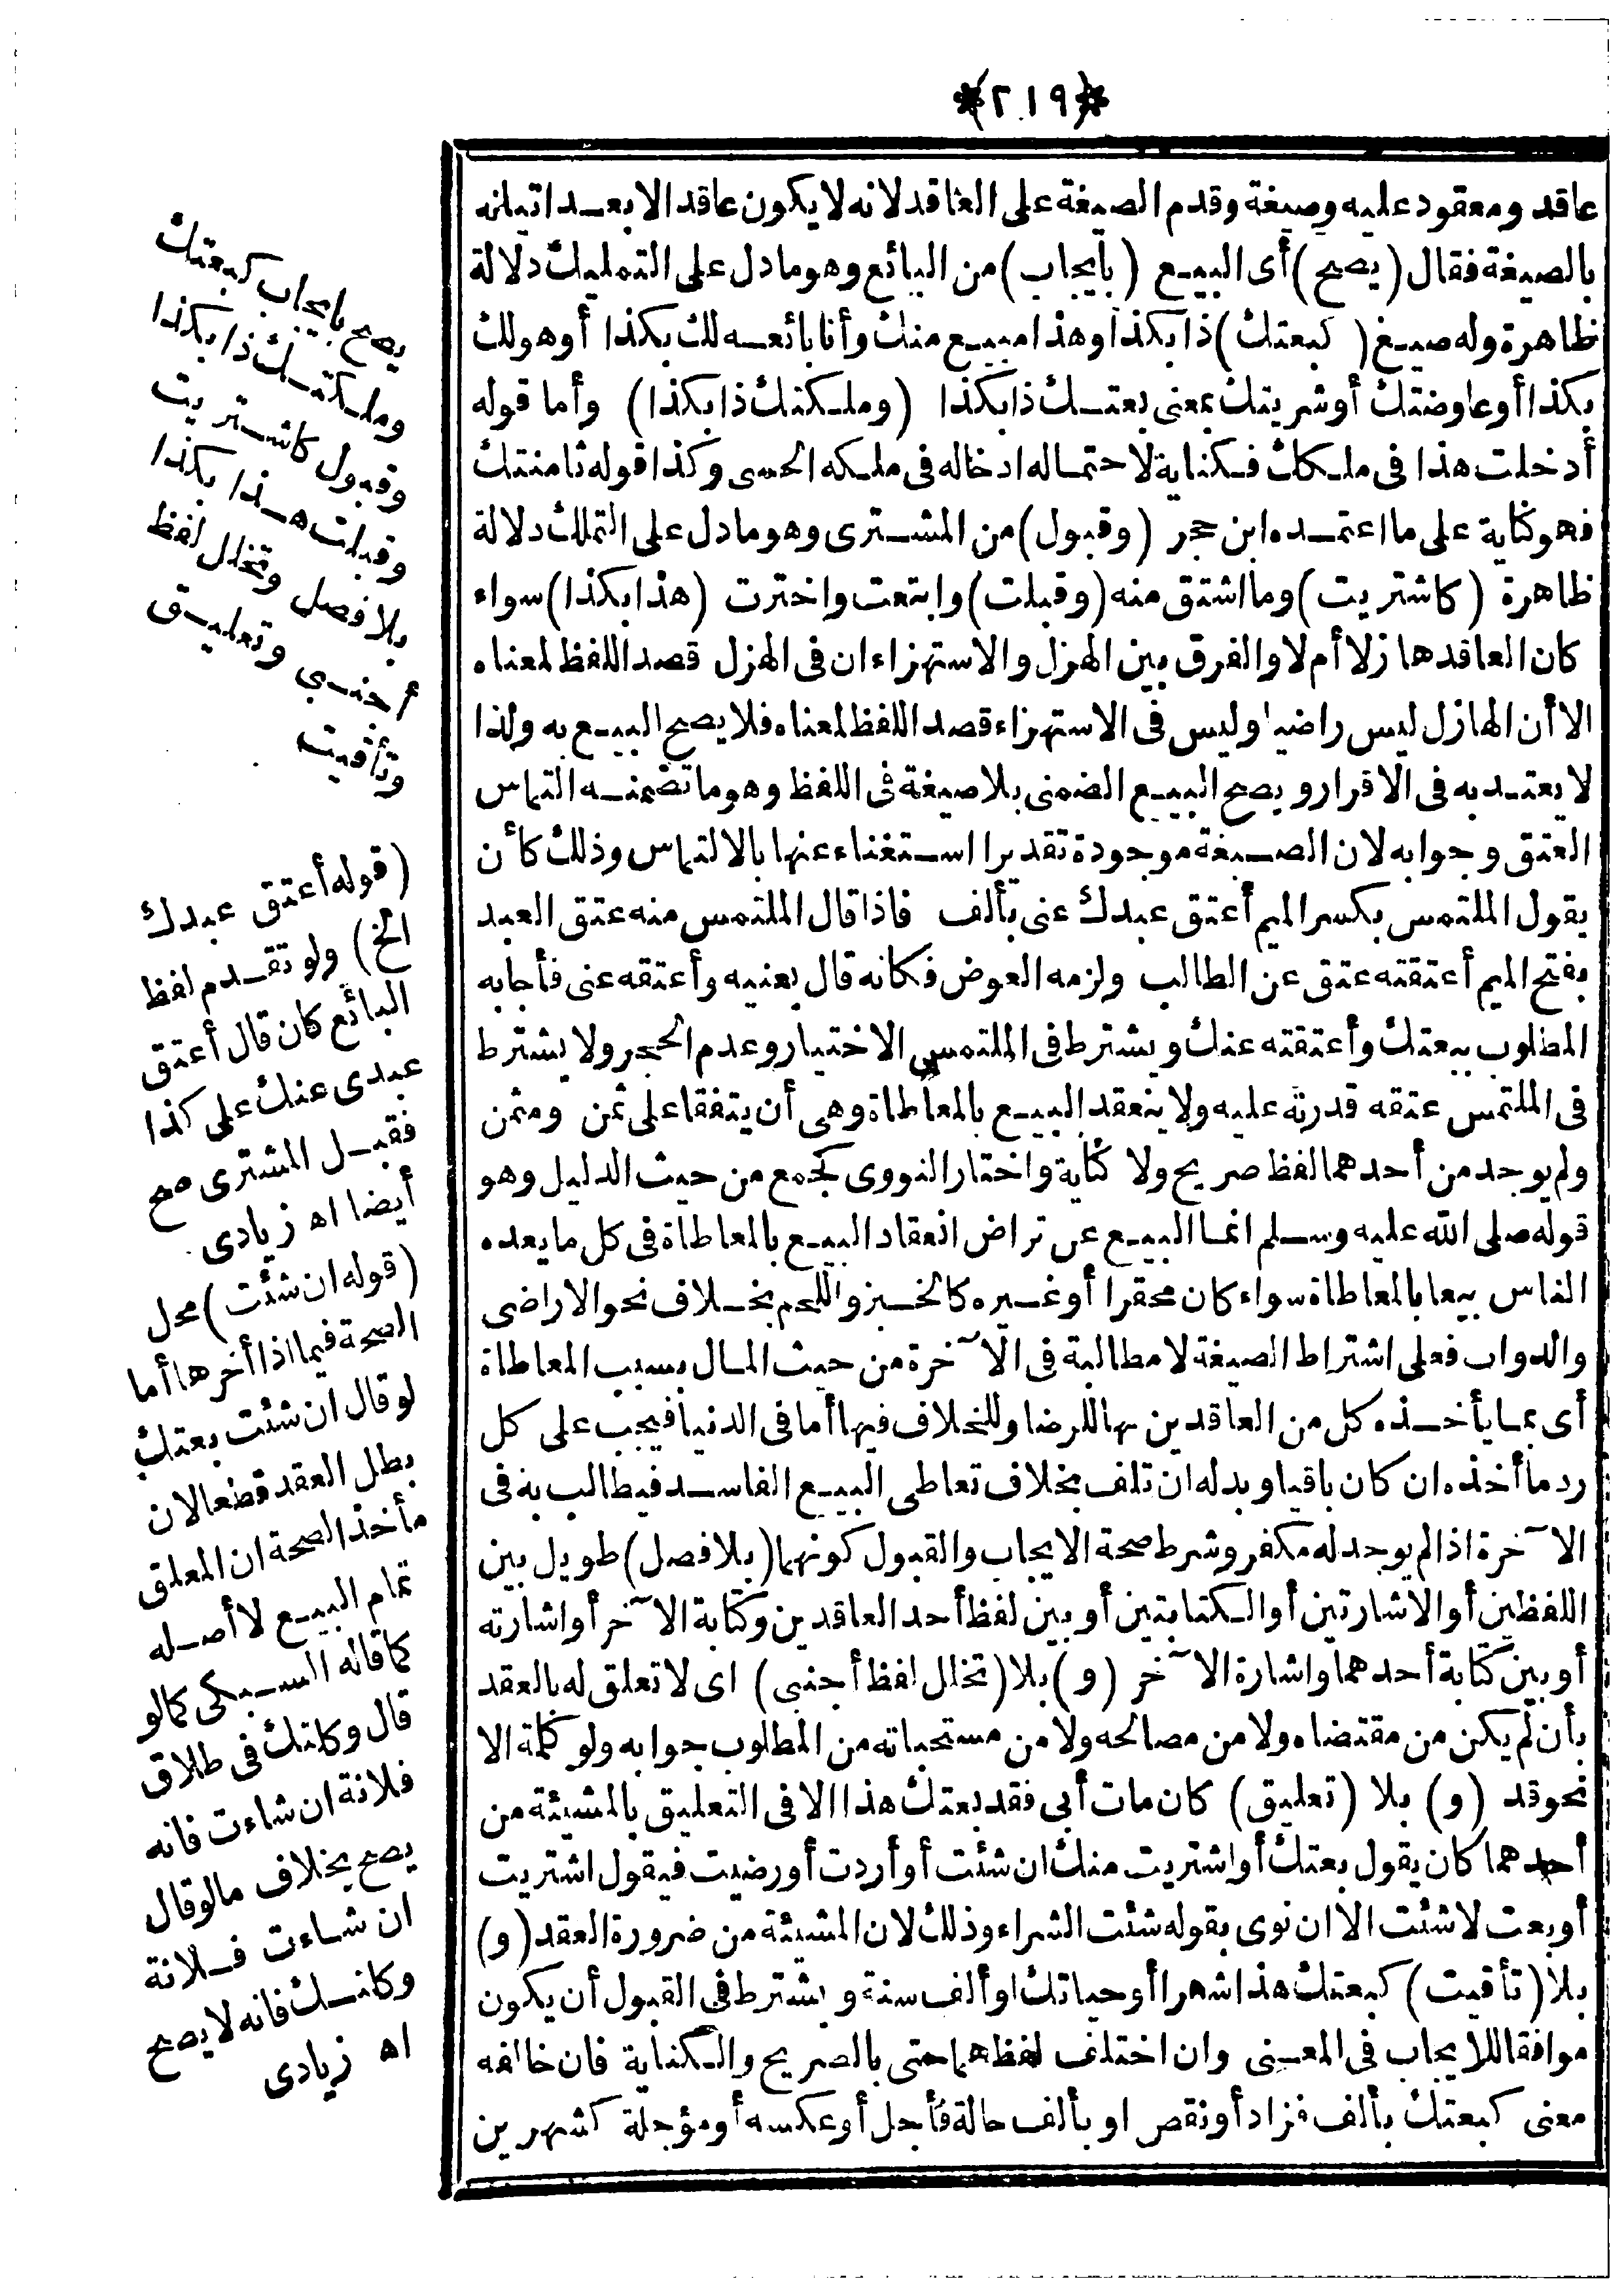 *(٢١٩)*
عاقد ومعقود عليه وصيغة وقدم الصيغة على العاقد لانه لا يكون عاقد الا بعد اتيانه
بالصيغة فقال (يصح) أى البيع (بايجاب) من البائع وهو ما دل على التمليك دلالة
ظاهرة وله صيغ (كبعتك) ذا بكذا وهذا مبيع منك وأنا بائعه لك بكذا أوهولك
بكذا أوعاوضتك أوشريتك بمعنى بعتك ذا بكذا (وملكتك ذا بكذا) وأما قوله
أدخلت هذا فى ملكك فكناية لاحتماله ادخاله فى ملكه الحسى وكذا قوله ثامنتك
فهو كناية على ما اعتمده ابن حجر (وقبول) من المشترى وهو ما دل على التملك دلالة
ظاهرة (كاشتريت) وما اشتق منه (وقبلت) وابتعت واخترت (هذا بكذا) سواء
كان العاقد هازلا أم لا والفرق بين الهزل والاستهزاء ان فى الهزل قصد اللفظ لمعناه
الا أن الهازل ليس راضيا وليس فى الاستهزاء قصد اللفظ لمعناه فلا يصح البيع به ولذا
لا يعتد به فى الاقرار ويصح البيع الضمنى بلا صيغة فى اللفظ وهو ما تضمنه التماس
العتق وجوابه لان الصيغة موجودة تقديرا استغناء عنها بالالتماس وذلك كأن
يقول الملتمس بكسر الميم أعتق عبدك عنى بألف فاذا قال الملتمس منه عتق العبد
بفتح الميم أعتقته عتق عن الطالب ولزمه العوض فكانه قال بعنيه وأعتقه عنى فأجابه
المطلوب ببعتك وأعتقته عنك ويشترط فى الملتمس الاختيار وعدم الحجر ولا يشترط
فى الملتمس عتقه قدرته عليه ولا ينعقد البيع بالمعاطاة وهى أن يتفقا على ثمن ومثمن
ولم يوجد من أحدهما لفظ صريح ولا كناية واختار النووى كجمع من حيث الدليل وهو
قوله صلى الله عليه وسلم انما البيع عن تراض انعقاد البيع بالمعاطاة فى كل ما يعده
الناس بيعا بالمعاطاة سواء كان محقرا أوغيره كالخبز واللحم بخلاف نحو الاراضى
والدواب فعلى اشتراط الصيغة لا مطالبة فى الآخرة من حيث المال بسبب المعاطاة
أى بما يأخذه كل من العاقدين بها للرضا وللخلاف فيها أما فى الدنيا فيجب على كل
رد ما أخذه ان كان باقيا وبدله ان تلف بخلاف تعاطى البيع الفاسد فيطالب به فى
الآخرة اذا لم يوجد له مكفر وشرط صحة الايجاب والقبول كونهما (بلا فصل) طويل بين
اللفظين أو الاشارتين أو الكتابتين أو بين لفظ أحد العاقدين وكتابة الآخر أواشارته
أو بين كتابة أحدهما واشارة الآخر (و) بلا (تخلل لفظ أجنبى) اى لا تعلق له بالعقد
بأن لم يكن من مقتضاه ولا من مصالحه ولا من مستحباته من المطلوب جوابه ولو كلمة الا
نحو قد (و) بلا (تعليق) كان مات أبى فقد بعتك هذا الا فى التعليق بالمشيئة من
أحدهما كان يقول بعتك أو اشتريت منك ان شئت أو أردت أو رضيت فيقول اشتريت
أو بعت لا شئت الا ان نوى بقوله شئت الشراء وذلك لان المشيئة من ضرورة العقد (و)
بلا (تأقيت) كبعتك هذا شهرا أوحياتك او ألف سنة ويشترط فى القبول أن يكون
موافقا للايجاب فى المعنى وان اختلف لفظهما حتى بالصريح والكناية فان خالفه
معنى كبعتك بألف فزاد أونقص او بألف حالة فأجل أوعكسه أو مؤجلة كشهرين
يصح بايجاب كبعتك
وملكتك ذا بكذا
وقبول كاشتريت
وقبلت هذا بكذا
بلا فصل وتخلل لفظ
أجنبى وتعليق
وتأقيت
(قوله أعتق عبدك
الخ) ولو تقدم لفظ
البائع كان قال أعتق
عبدى عنك على كذا
فقبل المشترى صح
أيضا اه زيادى
(قوله ان شئت) محل
الصحة فيما اذا أخرها أما
لو قال ان شئت بعتك
بطل العقد قطعا لان
مأخذ الصحة ان المعلق
تمام البيع لا أصله
كما قاله السبكى كما لو
قال وكلتك فى طلاق
فلانة ان شاءت فانه
يصح بخلاف ما لو قال
ان شاءت فلانة
وكلتك فانه لا يصح
اه زيادى